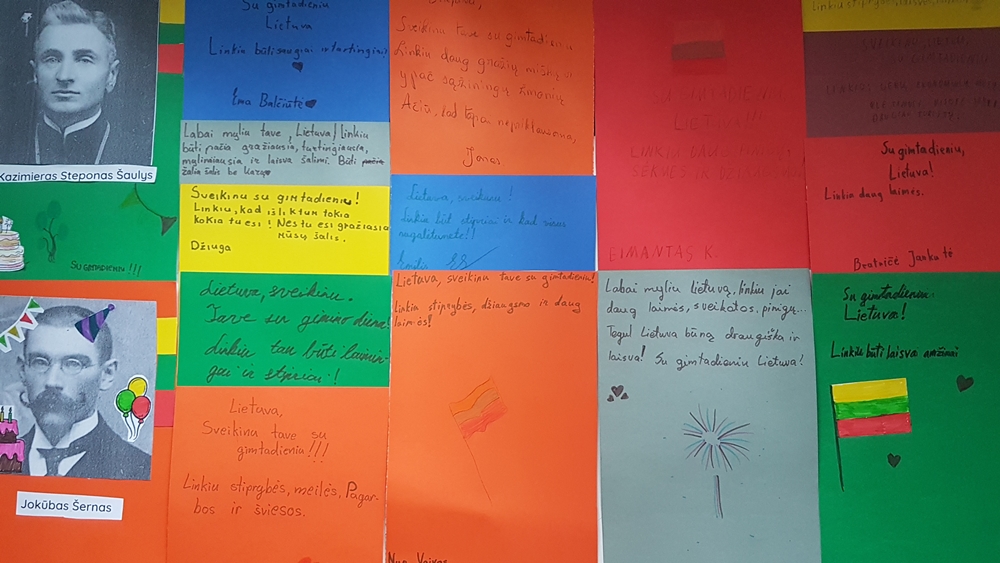 Kazimieras Steponas Šaulys
SU GIMTADIENIU!!!
Jokūbas Šernas
Su gimtadieniu
Lietuva
Linkiu būti saugiai ir turtingiai!
Ema Balčiūtė
Labai myliu tave, Lietuva! Linkiu
būti pačia gražiausia, turtingiausia,
mylimiausia ir laisva šalimi. Būti
žalia šalis be karų
Sveikinu su gimtadieniu!
Linkiu, kad išliktum tokia
kokia tu esi! Nes tu esi gražiausia
mūsų šalis.
Džiuga
Lietuva, sveikinu
Tave su gimimo diena!
Linkiu tau būti laimin-
gai ir stipriai!
Lietuva,
Sveikinu tave su
gimtadieniu!!!
Linkiu stiprybės, meilės, Pagar-
bos ir šviesos.
Sveikinu tave su gimtadieniu
Linkiu daug gražių miškų ir
ypač sąžiningų žmonių
Ačiū, kad tapai nepriklausoma,
Jonas
Lietuva, sveikinu!
Linkiu būt stipriai ir kad visus
nugalėtumėte!!
Lietuva, sveikinu tave su gimtadieniu!
Linkiu stiprybės, džiaugsmo ir daug
laimės!
Nuo Vaivos
SU GIMTADIENIU
LIETUVA!!!
EIMANTAS K.
Labai myliu Lietuvą, linkiu jai
daug laimės, sveikatos, pinigų...
Tegul Lietuva būna draugiška ir
laisva! Su gimtadieniu Lietuva!
SU GIMTADIENIU
Su gimtadieniu,
Lietuva!
Linkiu daug laimės.
Beatričė Jankutė
Su gimtadieniu
Lietuva!
Linkiu būti laisva amžinai